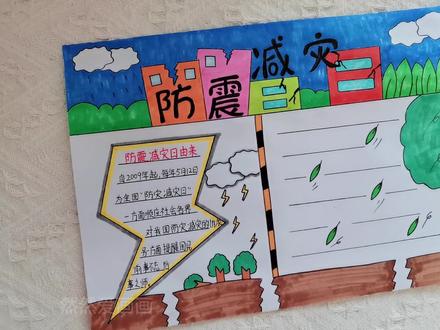 防震减灾日
防震减灾日由来
自2009年起,每年5月12日
为全国"防灾减灾日"
一方面顺应社会各界
对我国防灾减灾的
另一方面提醒国民
前事不忘 后
事之师